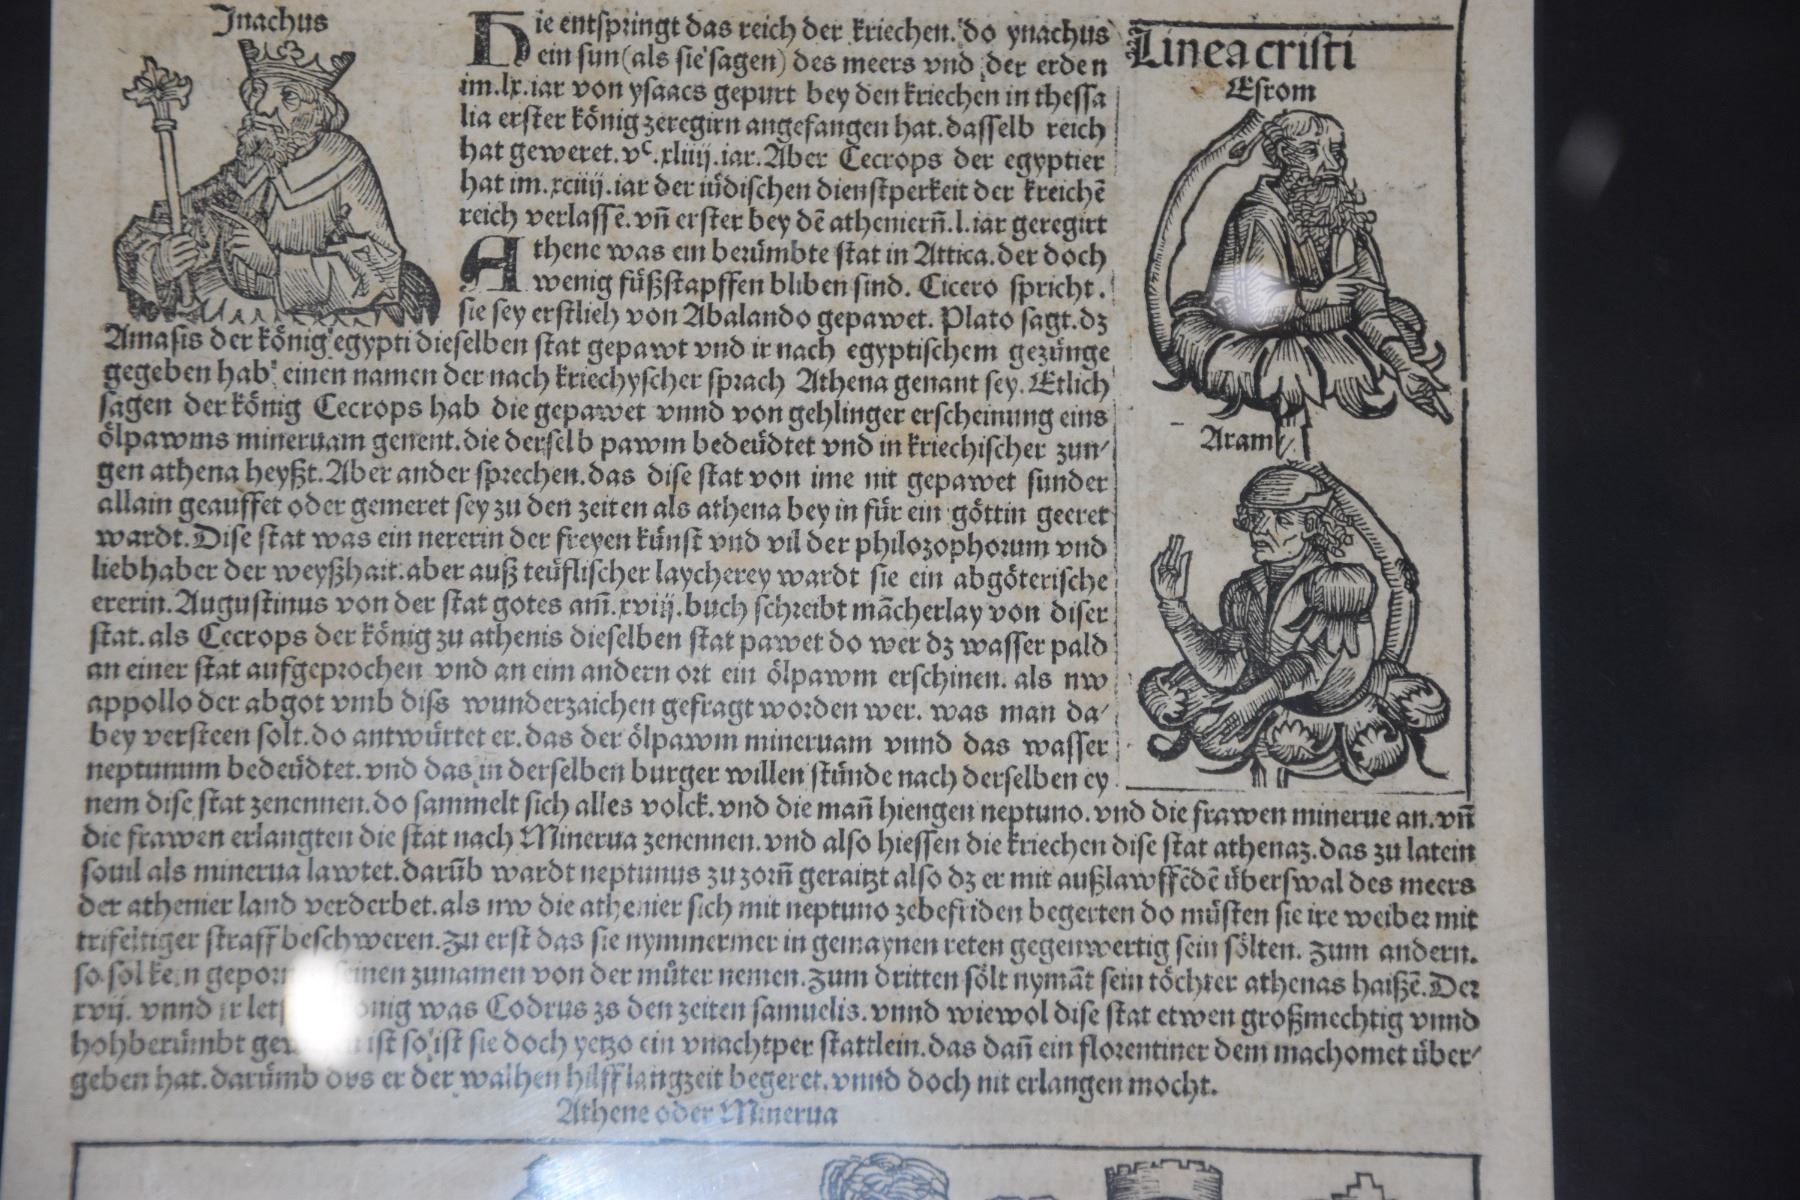 Inachus
Hie entspringt das reich der kriechen. do ynachus
ein sun (als sie sagen) des meers vnd der erden
im .lx. iar von ysaacs gepurt bey den kriechen in thessa
lia erster könig zeregirn angefangen hat. dasselb reich
hat geweret. vᶜ. xliiij. iar. Aber Cecrops der egyptier
hat im. xciiij. iar der iüdischen dienstperkeit der kreichē
reich verlassē. vn̄ erster bey dē atheniern̄. l. iar geregirt
Athene was ein berümbte stat in Attica. der doch
wenig füßstapffen bliben sind. Cicero spricht.
sie sey erstlich von Abalando gepawet. Plato sagt. dz
Amasis der könig egypti dieselben stat gepawt vnd ir nach egyptischem gezünge
gegeben hab' einen namen der nach kriechyscher sprach Athena genant sey. Etlich
sagen der könig Cecrops hab die gepawet vnnd von gehlinger erscheinung eins
ölpawms mineruam genent. die derselb pawm bedeüdtet vnd in kriechischer zun-
gen athena heyßt. Aber ander sprechen. das dise stat von ime nit gepawet sunder
allain geauffet oder gemeret sey zu den zeiten als athena bey in für ein göttin geeret
wardt. Dise stat was ein nererin der freyen künst vnd vil der philozophorum vnd
liebhaber der weyßhait. aber auß teüflischer laycherey wardt sie ein abgöterische
ererin. Augustinus von der stat gotes am̄. xviij. buch schreibt mācherlay von diser
stat. als Cecrops der könig zu athenis dieselben stat pawet do wer dz wasser pald
an einer stat aufgeprochen vnd an eim andern ort ein ölpawm erschinen. als nw
appollo der abgot vmb diss wunderzaichen gefragt worden wer. was man da-
bey versteen solt. do antwürtet er. das der ölpawm mineruam vnnd das wasser
neptunum bedeüdtet. vnd das in derselben burger willen stünde nach derselben ey
nem dise stat zenennen. do sammelt sich alles volck. vnd die man̄ hiengen neptuno. vnd die frawen minerue an. vn̄
die frawen erlangten die stat nach Minerua zenennen. vnd also hiessen die kriechen dise stat athenaz. das zu latein
souil als minerua lawtet. darüb wardt neptunus zu zorn̄ geraitzt also dz er mit außlawffēdē überswal des meers
der athenier land verderbet. als nw die athenier sich mit neptuno zebefriden begerten do müsten sie ire weiber mit
trifeltiger straff beschweren. Zu erst das sie nymmermer in gemaynen reten gegenwertig sein sölten. Zum andern.
so sol kein einen zunamen von der müter nemen. Zum dritten sölt nymāt sein töchter athenas haißē. Der
xvij. vnnd ir was Codrus zs den zeiten samuelis. vnnd wiewol dise stat etwen großmechtig vnnd
hohberümbt ist so ist sie doch yetzo ein vnachtper stattlein. das dan̄ ein florentiner dem machomet über-
geben hat. darümb das er der walhen hilff langzeit begeret. vnnd doch nit erlangen mocht.
Athene oder Minerua
Linea cristi
Esrom
Aram